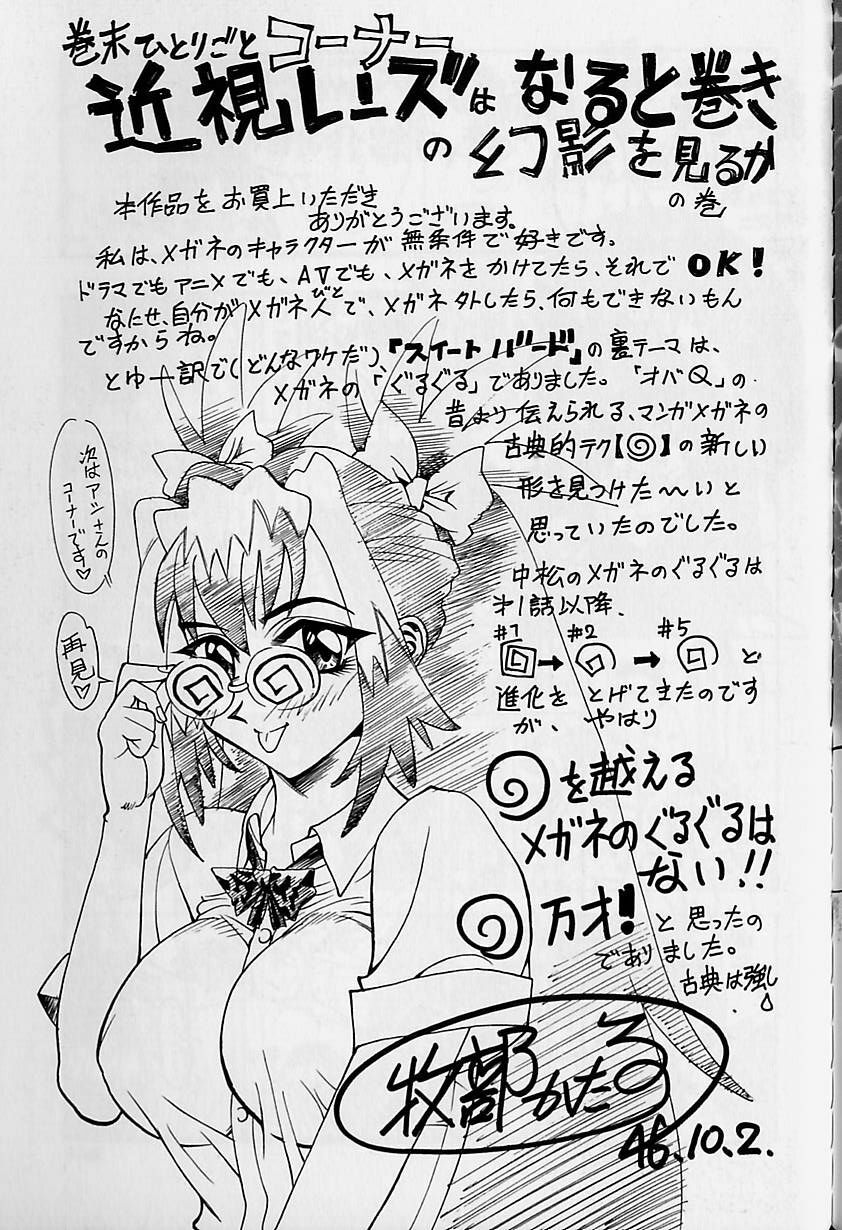 巻末ひとりごとコーナー
近視レンズは なると巻き
の幻影を見るか
の巻
本作品をお買上いただき
ありがとうございます。
私は、メガネのキャラクターが無条件で好きです。
ドラマでもアニメでも、AVでも、メガネをかけてたら、それでOK!
なにせ、自分がメガネ人びとで、メガネ外したら、何もできないもん
ですからね。
とゆー訳で(どんなワケだ)、『スイートバード』の裏テーマは、
メガネの「ぐるぐる」でありました。「オバQ」の
昔より伝えられる、マンガメガネの
古典的テク【◎】の新しい
形を見つけた〜いと
思っていたのでした。
中松のメガネのぐるぐるは
才1話以降、
#1 → #2 → #5 と
進化をとげてきたのです
が、やはり
を越える
メガネのぐるぐるは
ない!!
万才! と思ったの
でありました。
古典は強し
次はアシさんの
コーナーです♡
再見♡
牧部かたる
96.10.2.